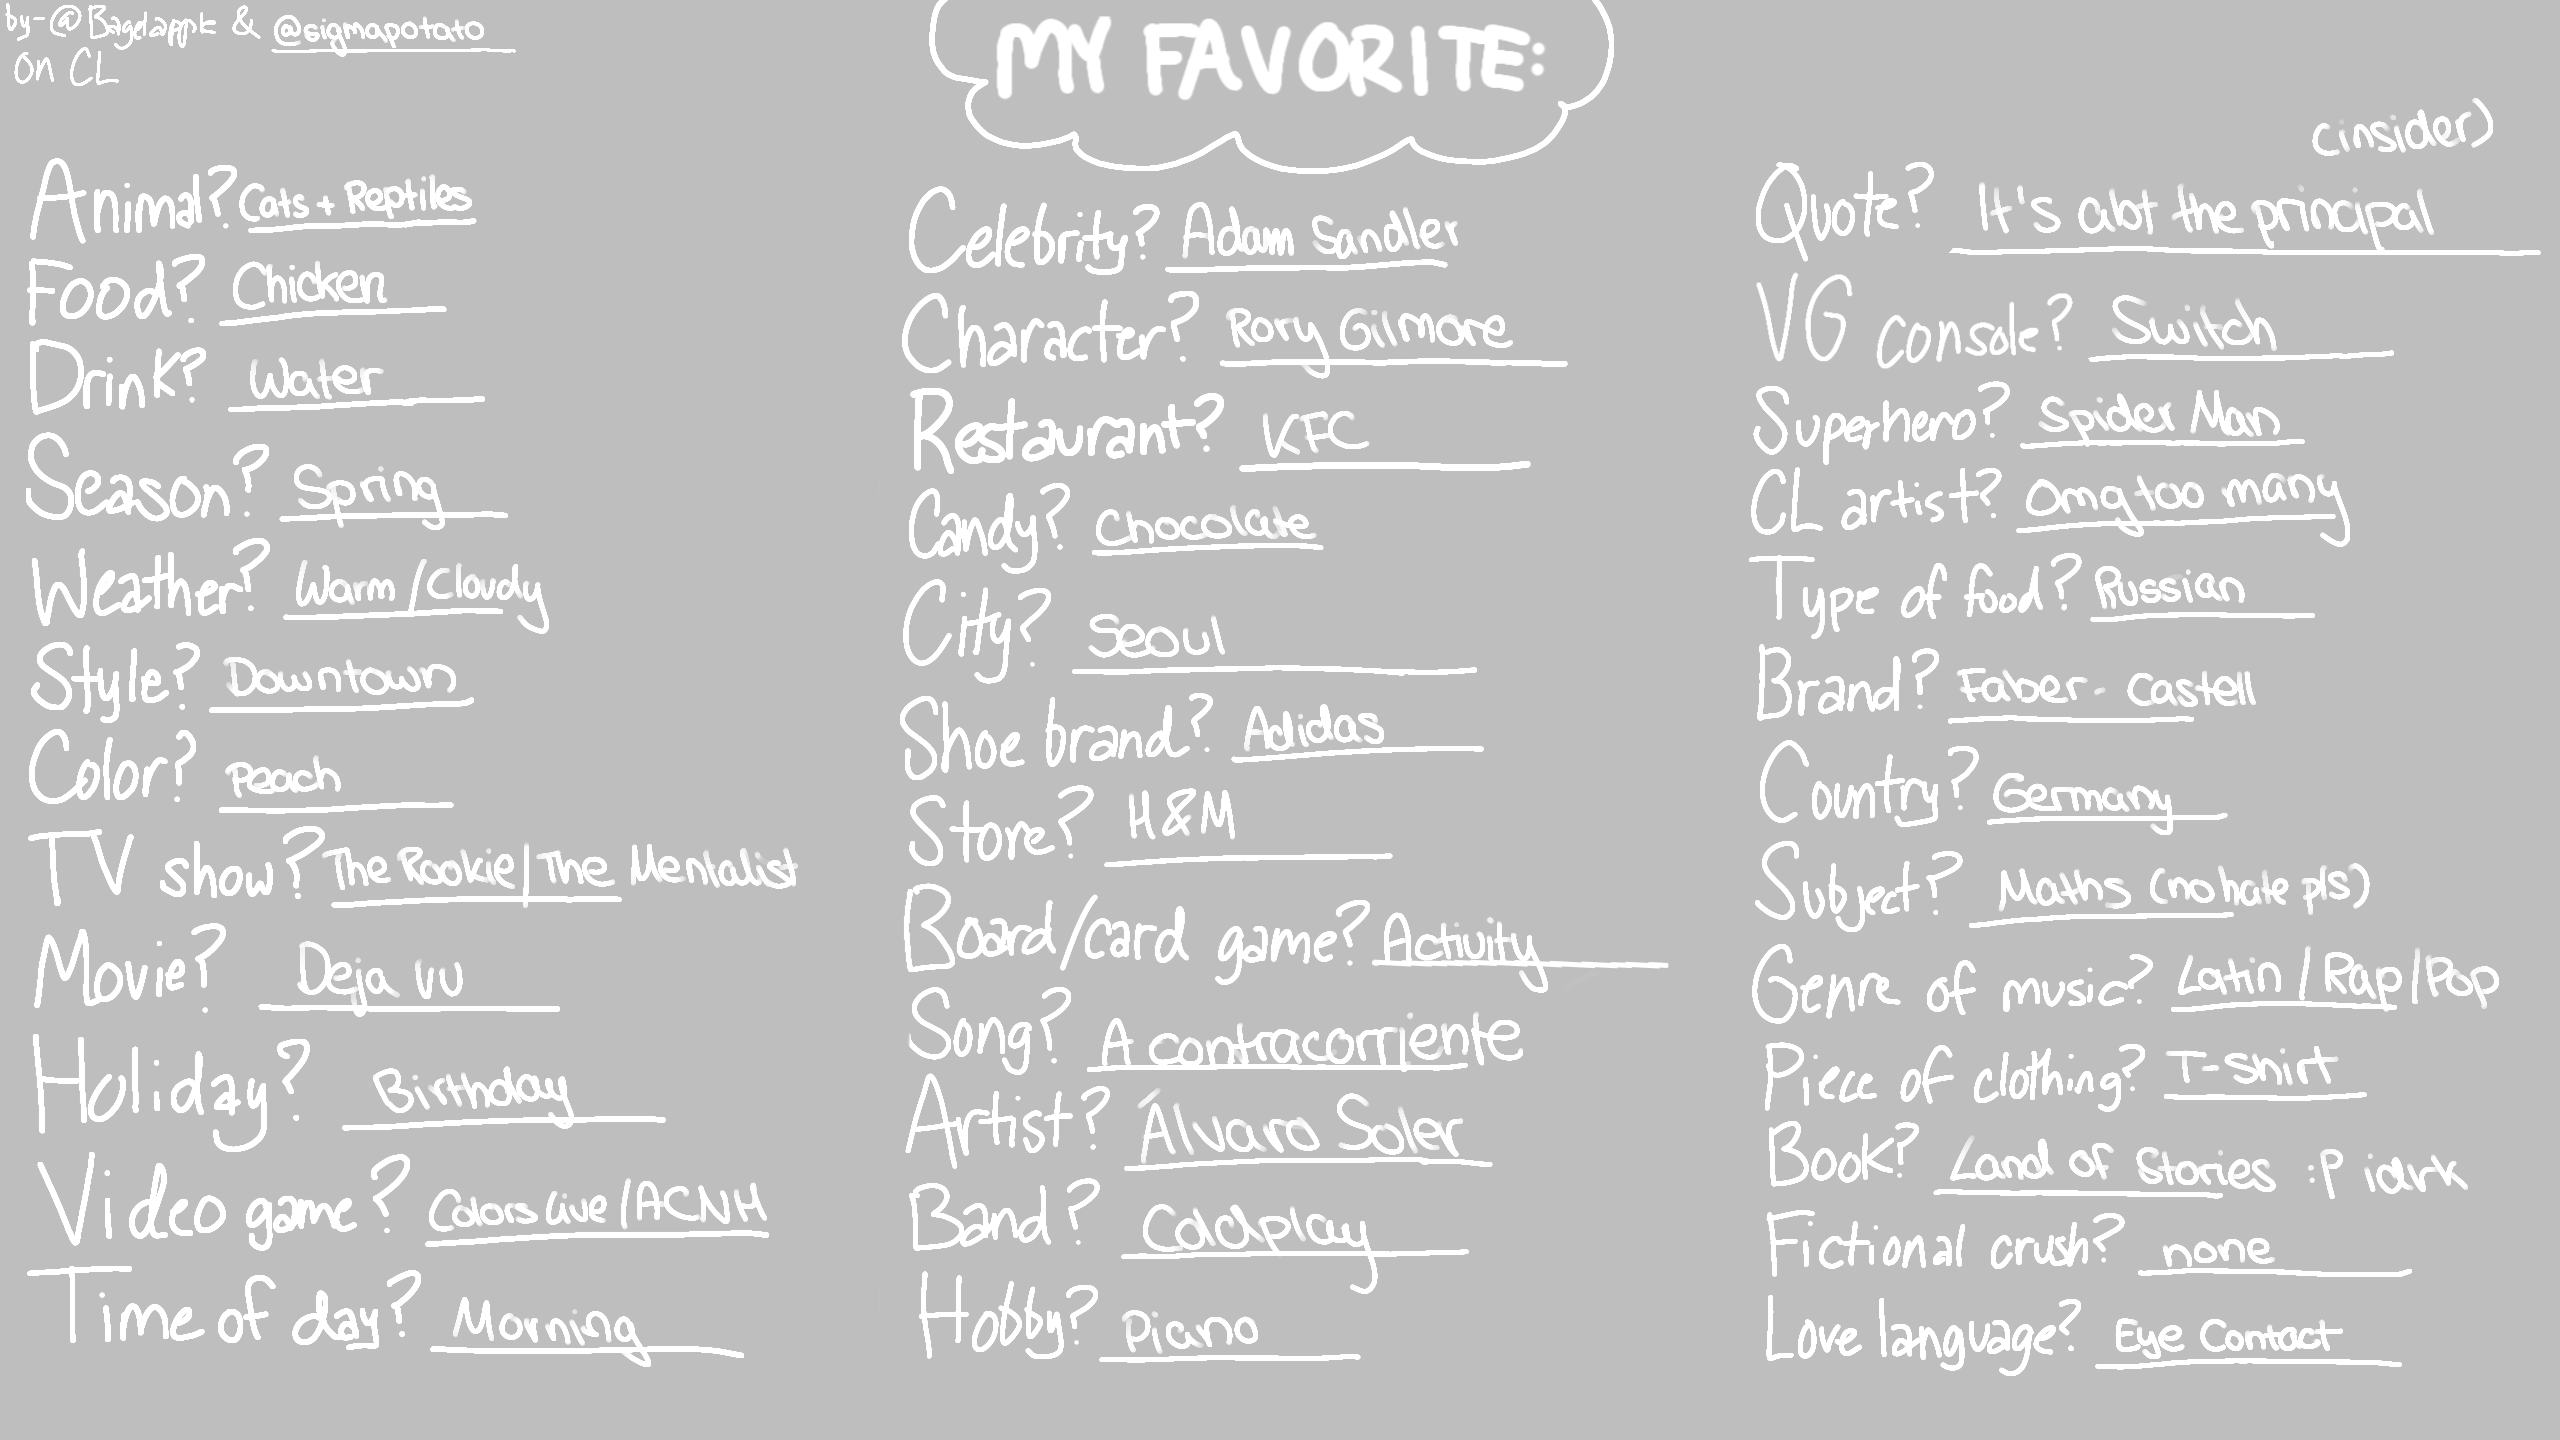 by-@Bagelapple & @sigmapotato
on CL
MY FAVORITE:
Animal? Cats + Reptiles
Food? Chicken
Drink? Water
Season? Spring
Weather? Warm / Cloudy
Style? Downtown
Color? Peach
TV show? The Rookie | The Mentalist
Movie? Deja vu
Holiday? Birthday
Video game? Colors Live / ACNH
Time of day? Morning
Celebrity? Adam Sandler
Character? Rory Gilmore
Restaurant? KFC
Candy? Chocolate
City? Seoul
Shoe brand? Adidas
Store? H&M
Board/card game? Activity
Song? A contracorriente
Artist? Álvaro Soler
Band? Coldplay
Hobby? Piano
(insider)
Quote? It's abt the principal
VG console? Switch
Superhero? Spider Man
CL artist? Omg too many
Type of food? Russian
Brand? Faber-Castell
Country? Germany
Subject? Maths (no hate pls)
Genre of music? Latin / Rap / Pop
Piece of clothing? T-Shirt
Book? Land of Stories :P idrk
Fictional crush? none
Love language? Eye Contact